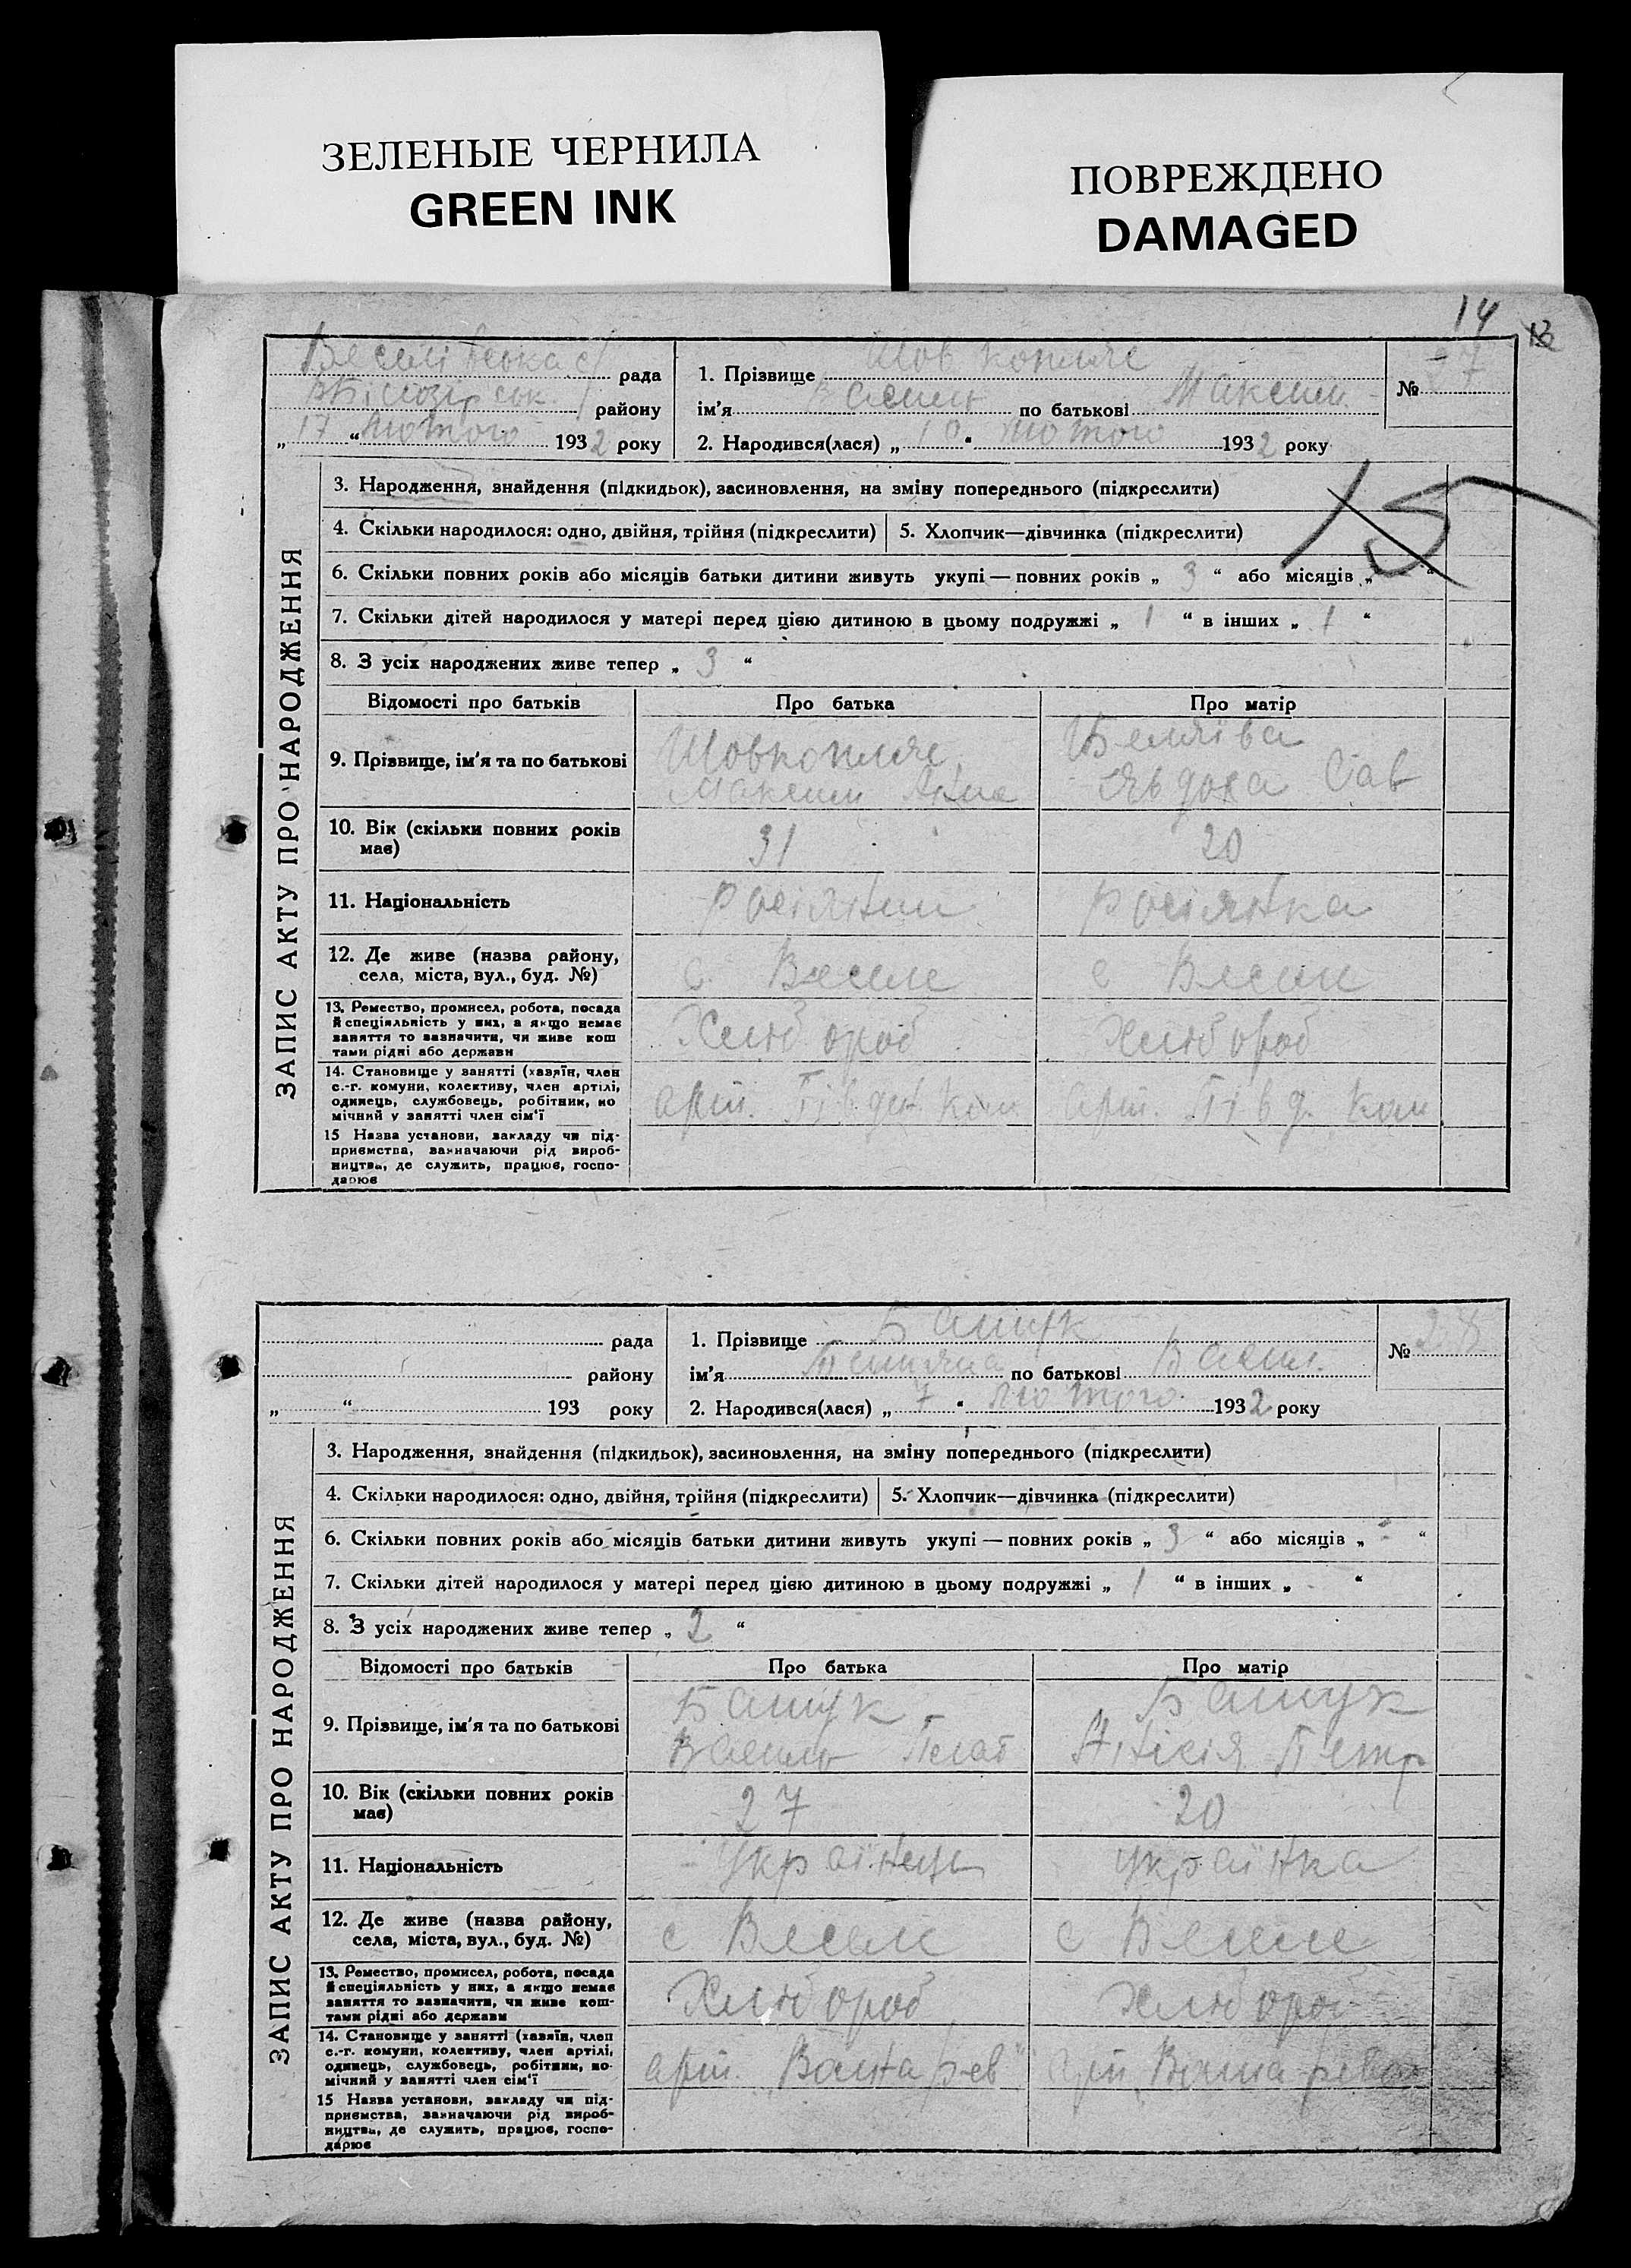 ЗЕЛЕНЫЕ ЧЕРНИЛА
GREEN INK
ПОВРЕЖДЕНО
DAMAGED
14
рада
району
„ 17 “ лютого 1932 року
1. Прізвище Шовкопляс
ім'я Василь по батькові Максим.
2. Народився(лася) „ 10 “ лютого 1932 року
№ 7
ЗАПИС АКТУ ПРО НАРОДЖЕННЯ
3. Народження, знайдення (підкидьок), засиновлення, на зміну попереднього (підкреслити)
15
4. Скільки народилося: одно, двійня, трійня (підкреслити)
5. Хлопчик—дівчинка (підкреслити)
6. Скільки повних років або місяців батьки дитини живуть укупі — повних років „ 3 “ або місяців „ “
7. Скільки дітей народилося у матері перед цією дитиною в цьому подружжі „ 1 “ в інших „ 1 “
8. З усіх народжених живе тепер „ 3 “
Відомості про батьків
Про батька
Про матір
9. Прізвище, ім'я та по батькові
Шовкопляс
Максим
Явдоха Сав
10. Вік (скільки повних років має)
31
20
11. Національність
росіянин
росіянка
12. Де живе (назва району, села, міста, вул., буд. №)
с. Веселе
с Веселе
13. Ремество, промисел, робота, посада й спеціяльність у них, а якщо немає заняття то зазначити, чи живе коштами рідні або держави
Хлібороб
Хлібороб
14. Становище у занятті (хазяїн, член с.-г. комуни, колективу, член артілі, одинець, службовець, робітник, помічний у занятті член сім'ї
арт. Півден Ком
арт. Півд. Ком
15 Назва установи, закладу чи підприємства, зазначаючи рід виробництва, де служить, працює, господарює
рада
району
„ “ 193 року
1. Прізвище Башук
ім'я Тетяна по батькові Васил.
2. Народився(лася) „ 7 “ лютого 1932 року
№ 28
ЗАПИС АКТУ ПРО НАРОДЖЕННЯ
3. Народження, знайдення (підкидьок), засиновлення, на зміну попереднього (підкреслити)
4. Скільки народилося: одно, двійня, трійня (підкреслити)
5. Хлопчик—дівчинка (підкреслити)
6. Скільки повних років або місяців батьки дитини живуть укупі — повних років „ 3 “ або місяців „ - “
7. Скільки дітей народилося у матері перед цією дитиною в цьому подружжі „ 1 “ в інших „ - “
8. З усіх народжених живе тепер „ 2 “
Відомості про батьків
Про батька
Про матір
9. Прізвище, ім'я та по батькові
Башук
Василь
Башук
Петр
10. Вік (скільки повних років має)
27
20
11. Національність
Українець
українка
12. Де живе (назва району, села, міста, вул., буд. №)
с Веселе
с Веселе
13. Ремество, промисел, робота, посада й спеціяльність у них, а якщо немає заняття то зазначити, чи живе коштами рідні або держави
Хлібороб
Хлібороб
14. Становище у занятті (хазяїн, член с.-г. комуни, колективу, член артілі, одинець, службовець, робітник, помічний у занятті член сім'ї
арт.
15 Назва установи, закладу чи підприємства, зазначаючи рід виробництва, де служить, працює, господарює